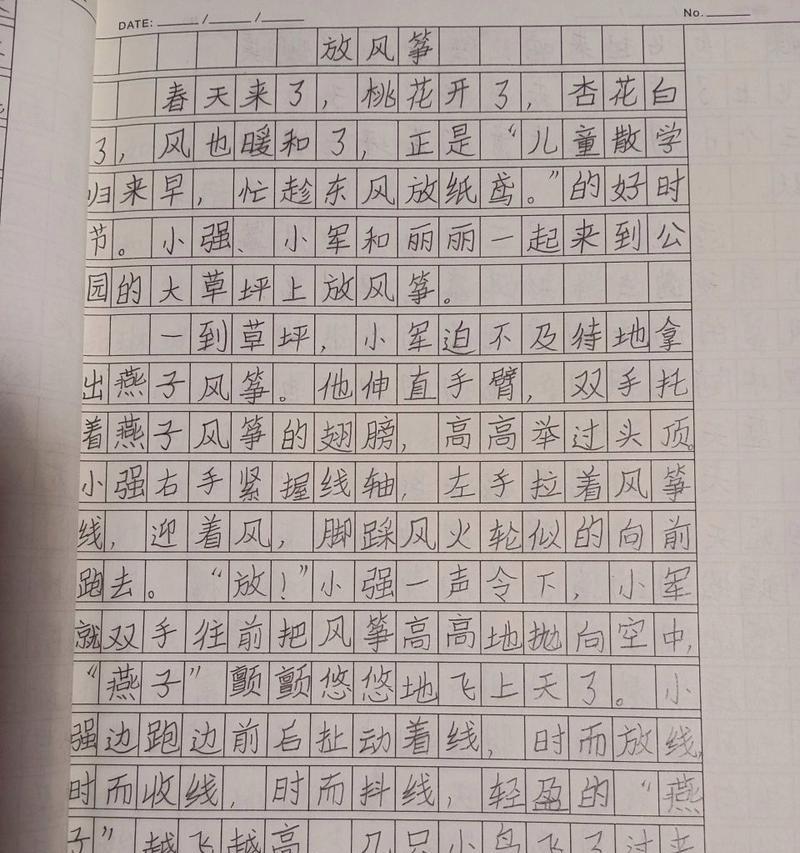 DATE: ____/____/____
No. ____
放风筝
春天来了，桃花开了，杏花白
了，风也暖和了，正是“儿童散学
归来早，忙趁东风放纸鸢。”的好时
节。小强、小军和丽丽一起来到公
园的大草坪上放风筝。
一到草坪，小军迫不及待地拿
出燕子风筝。他伸直手臂，双手托
着燕子风筝的翅膀，高高举过头顶。
小强右手紧握线轴，左手拉着风筝
线，迎着风，脚踩风火轮似的向前
跑去。“放！”小强一声令下，小军
就双手往前把风筝高高地抛向空中，
“燕子”颤颤悠悠地飞上天了。小
强边跑边前后扯动着线，时而放线，
时而收线，时而抖线，轻盈的“燕
子”越飞越高，几只小鸟飞了过来